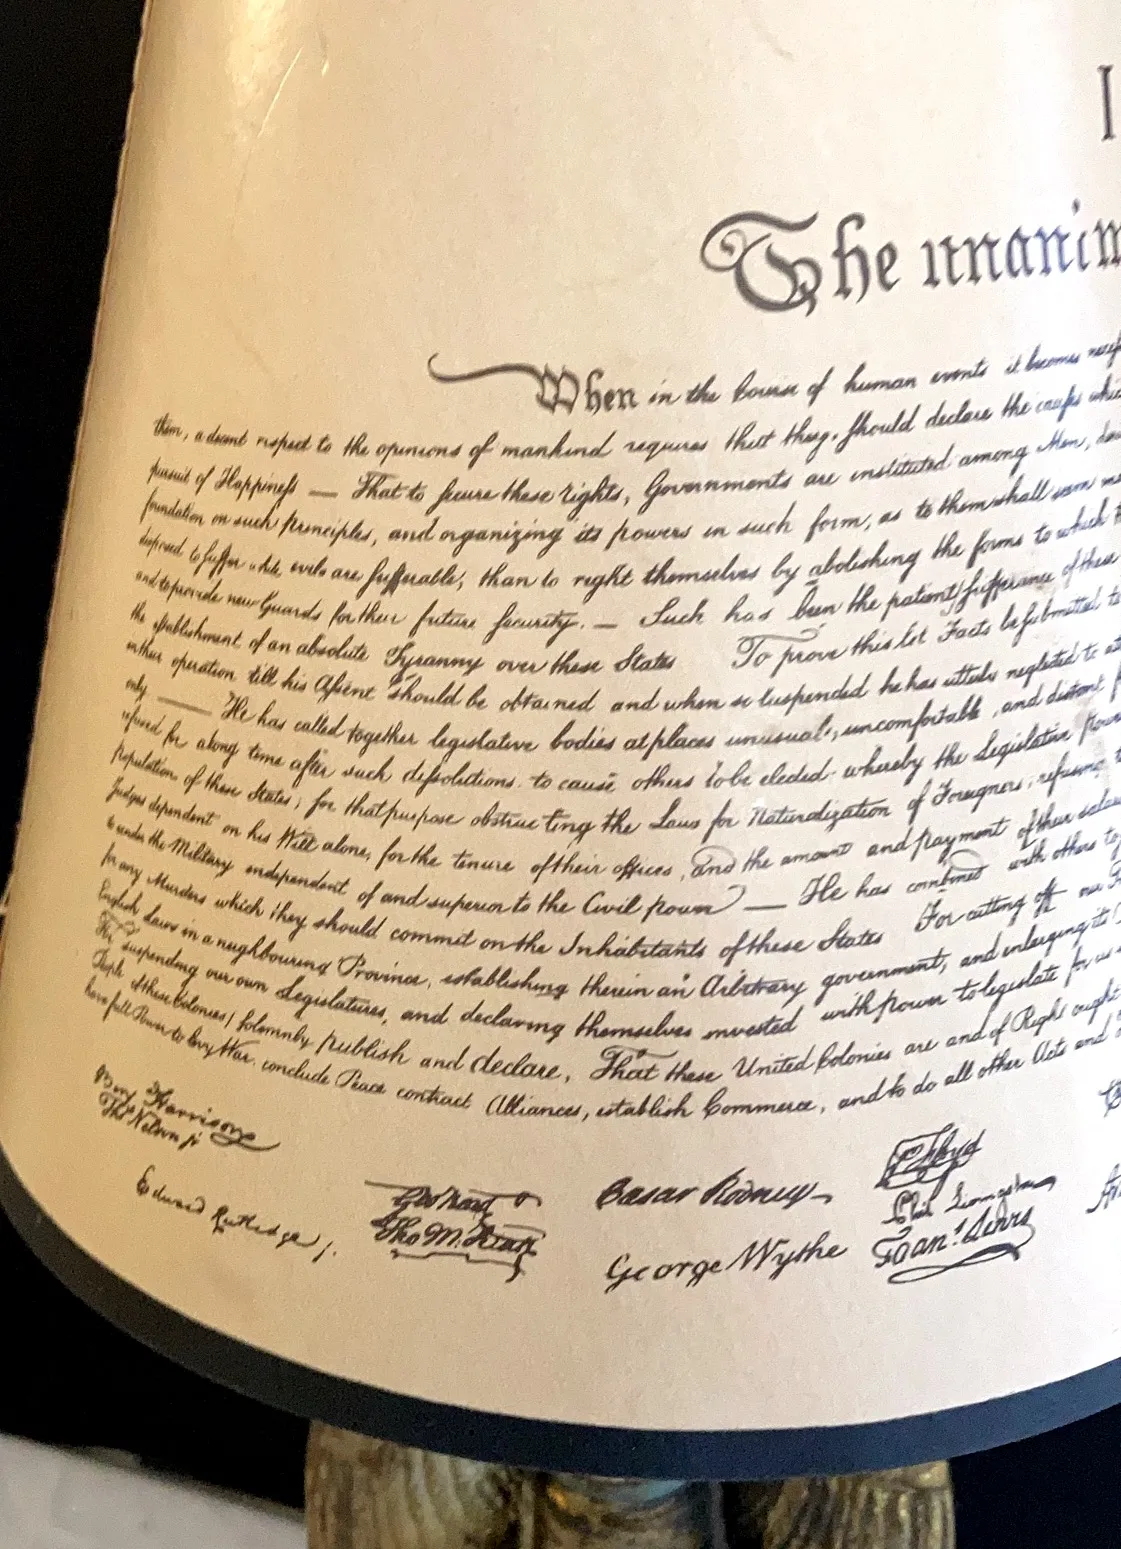 I
The unanim
When in the Course of human events it becomes necess
them, a decent respect to the opinions of mankind requires that they should declare the causes whic
pursuit of Happiness — That to secure these rights, Governments are instituted among Men, de
foundation on such principles, and organizing its powers in such form, as to them shall seem m
disposed to suffer while evils are sufferable, than to right themselves by abolishing the forms to which t
and to provide new Guards for their future security. — Such has been the patient sufferance of these
the establishment of an absolute Tyranny over these States To prove this let Facts be submitted to
in their operation till his Assent should be obtained and when so suspended he has utterly neglected to at
only — He has called together legislative bodies at places unusual, uncomfortable, and distant f
refused for a long time after such dissolutions to cause others to be elected whereby the Legislative pow
population of these States; for that purpose obstructing the Laws for Naturalization of Foreigners; refusing t
Judges dependent on his Will alone, for the tenure of their offices, and the amount and payment of their salar
to render the Military independent of and superior to the Civil power — He has combined with others to
for any Murders which they should commit on the Inhabitants of these States For cutting off our
English Laws in a neighbouring Province, establishing therein an Arbitrary government, and enlarging its
For suspending our own Legislatures, and declaring themselves invested with power to legislate for us
People of these Colonies, solemnly publish and declare, That these United Colonies are and of Right ought
have full Power to levy War, conclude Peace contract Alliances, establish Commerce, and to do all other Acts and
Benj Harrison
Thos Nelson jr
Edward Rutledge
Geo Read
Tho M:Kean
Caesar Rodney
George Wythe
Floyd
Phil Livingston
Fran! Lewis